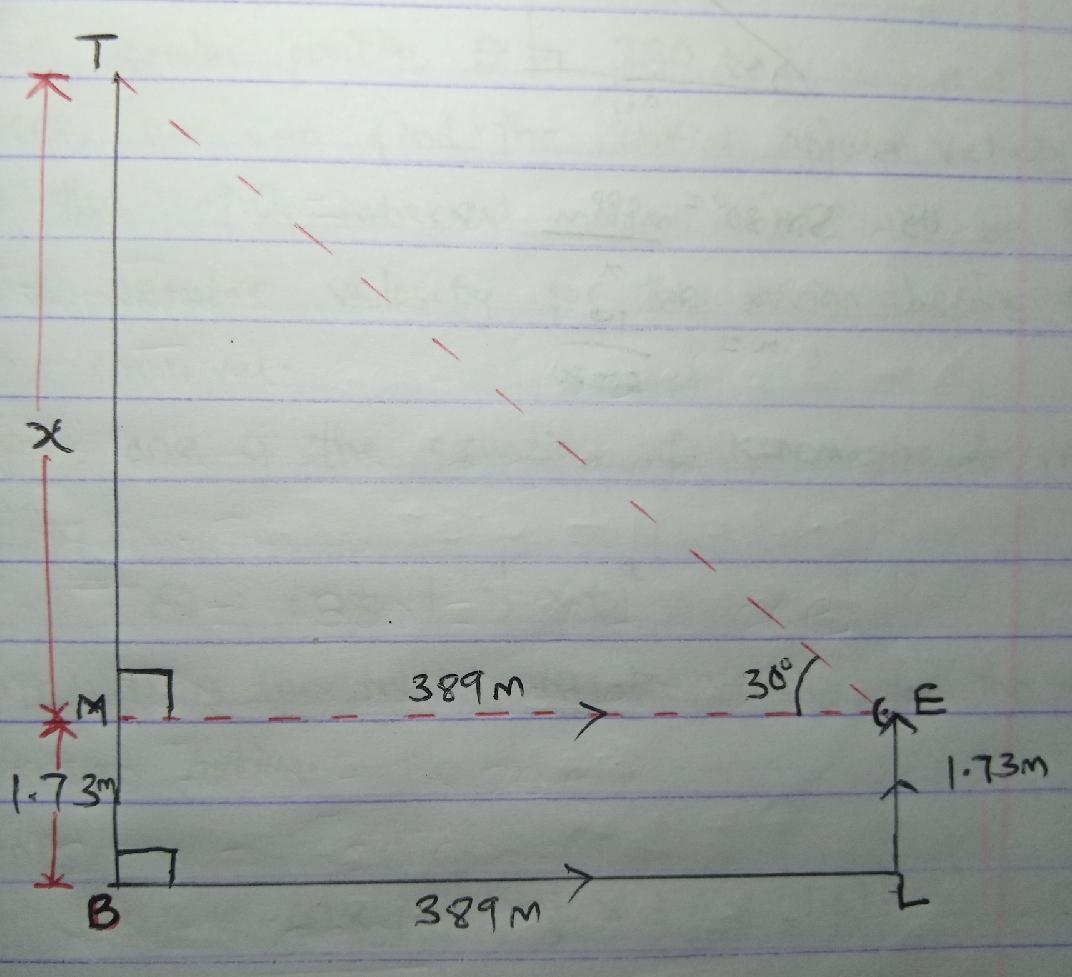 T
x
M
389m
30°
E
1.73m
1.73m
B
389m
L